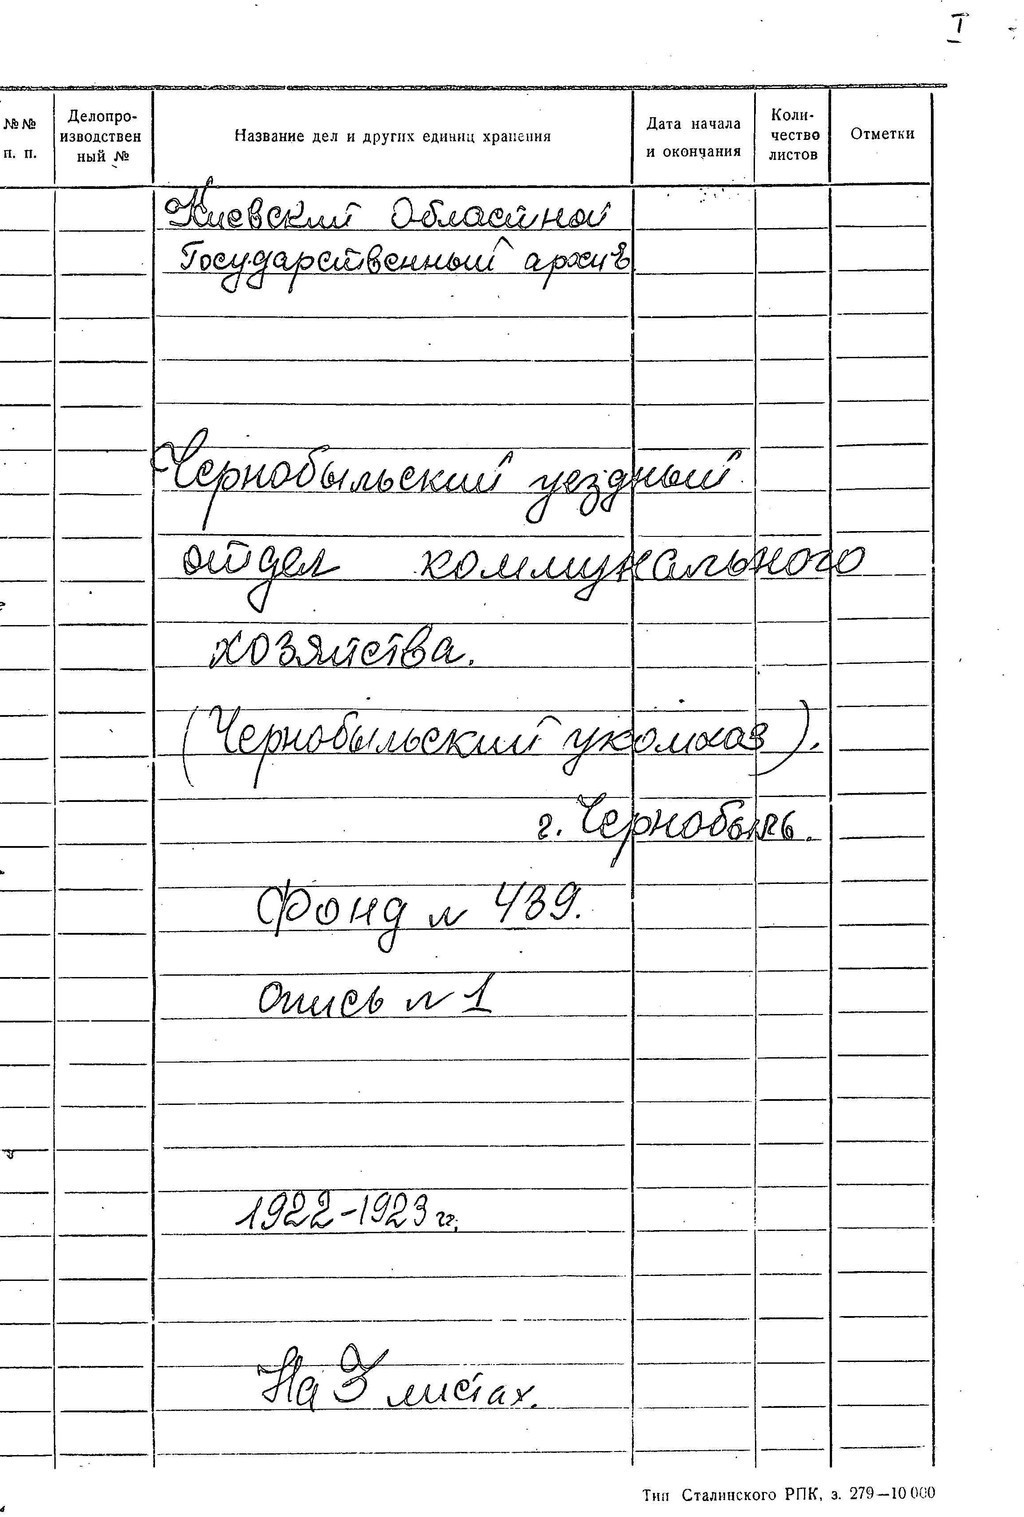 I
№№ п. п.
Делопро-
изводствен
ный №
Название дел и других единиц хранения
Дата начала
и окончания
Коли-
чество
листов
Отметки
Киевский Областной
Государственный архив
Чернобыльский уездный
отдел коммунального
хозяйства.
(Чернобыльский укомхоз).
г. Чернобыль.
Фонд № 439.
Опись № 1
1922-1923 гг.
На 3 листах.
Тип Сталинского РПК, з. 279—10 000